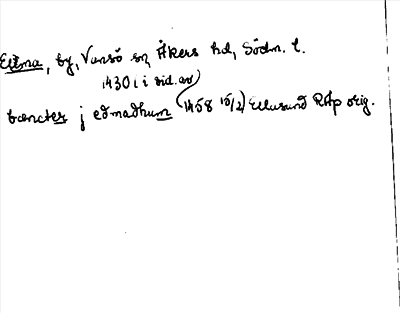 Edma, by, Vansö sn, Åkers hd, Södm. l.
1430 i vid. av
bæncter j eđmadhum (1458 15/2) Ellusund RAp orig.